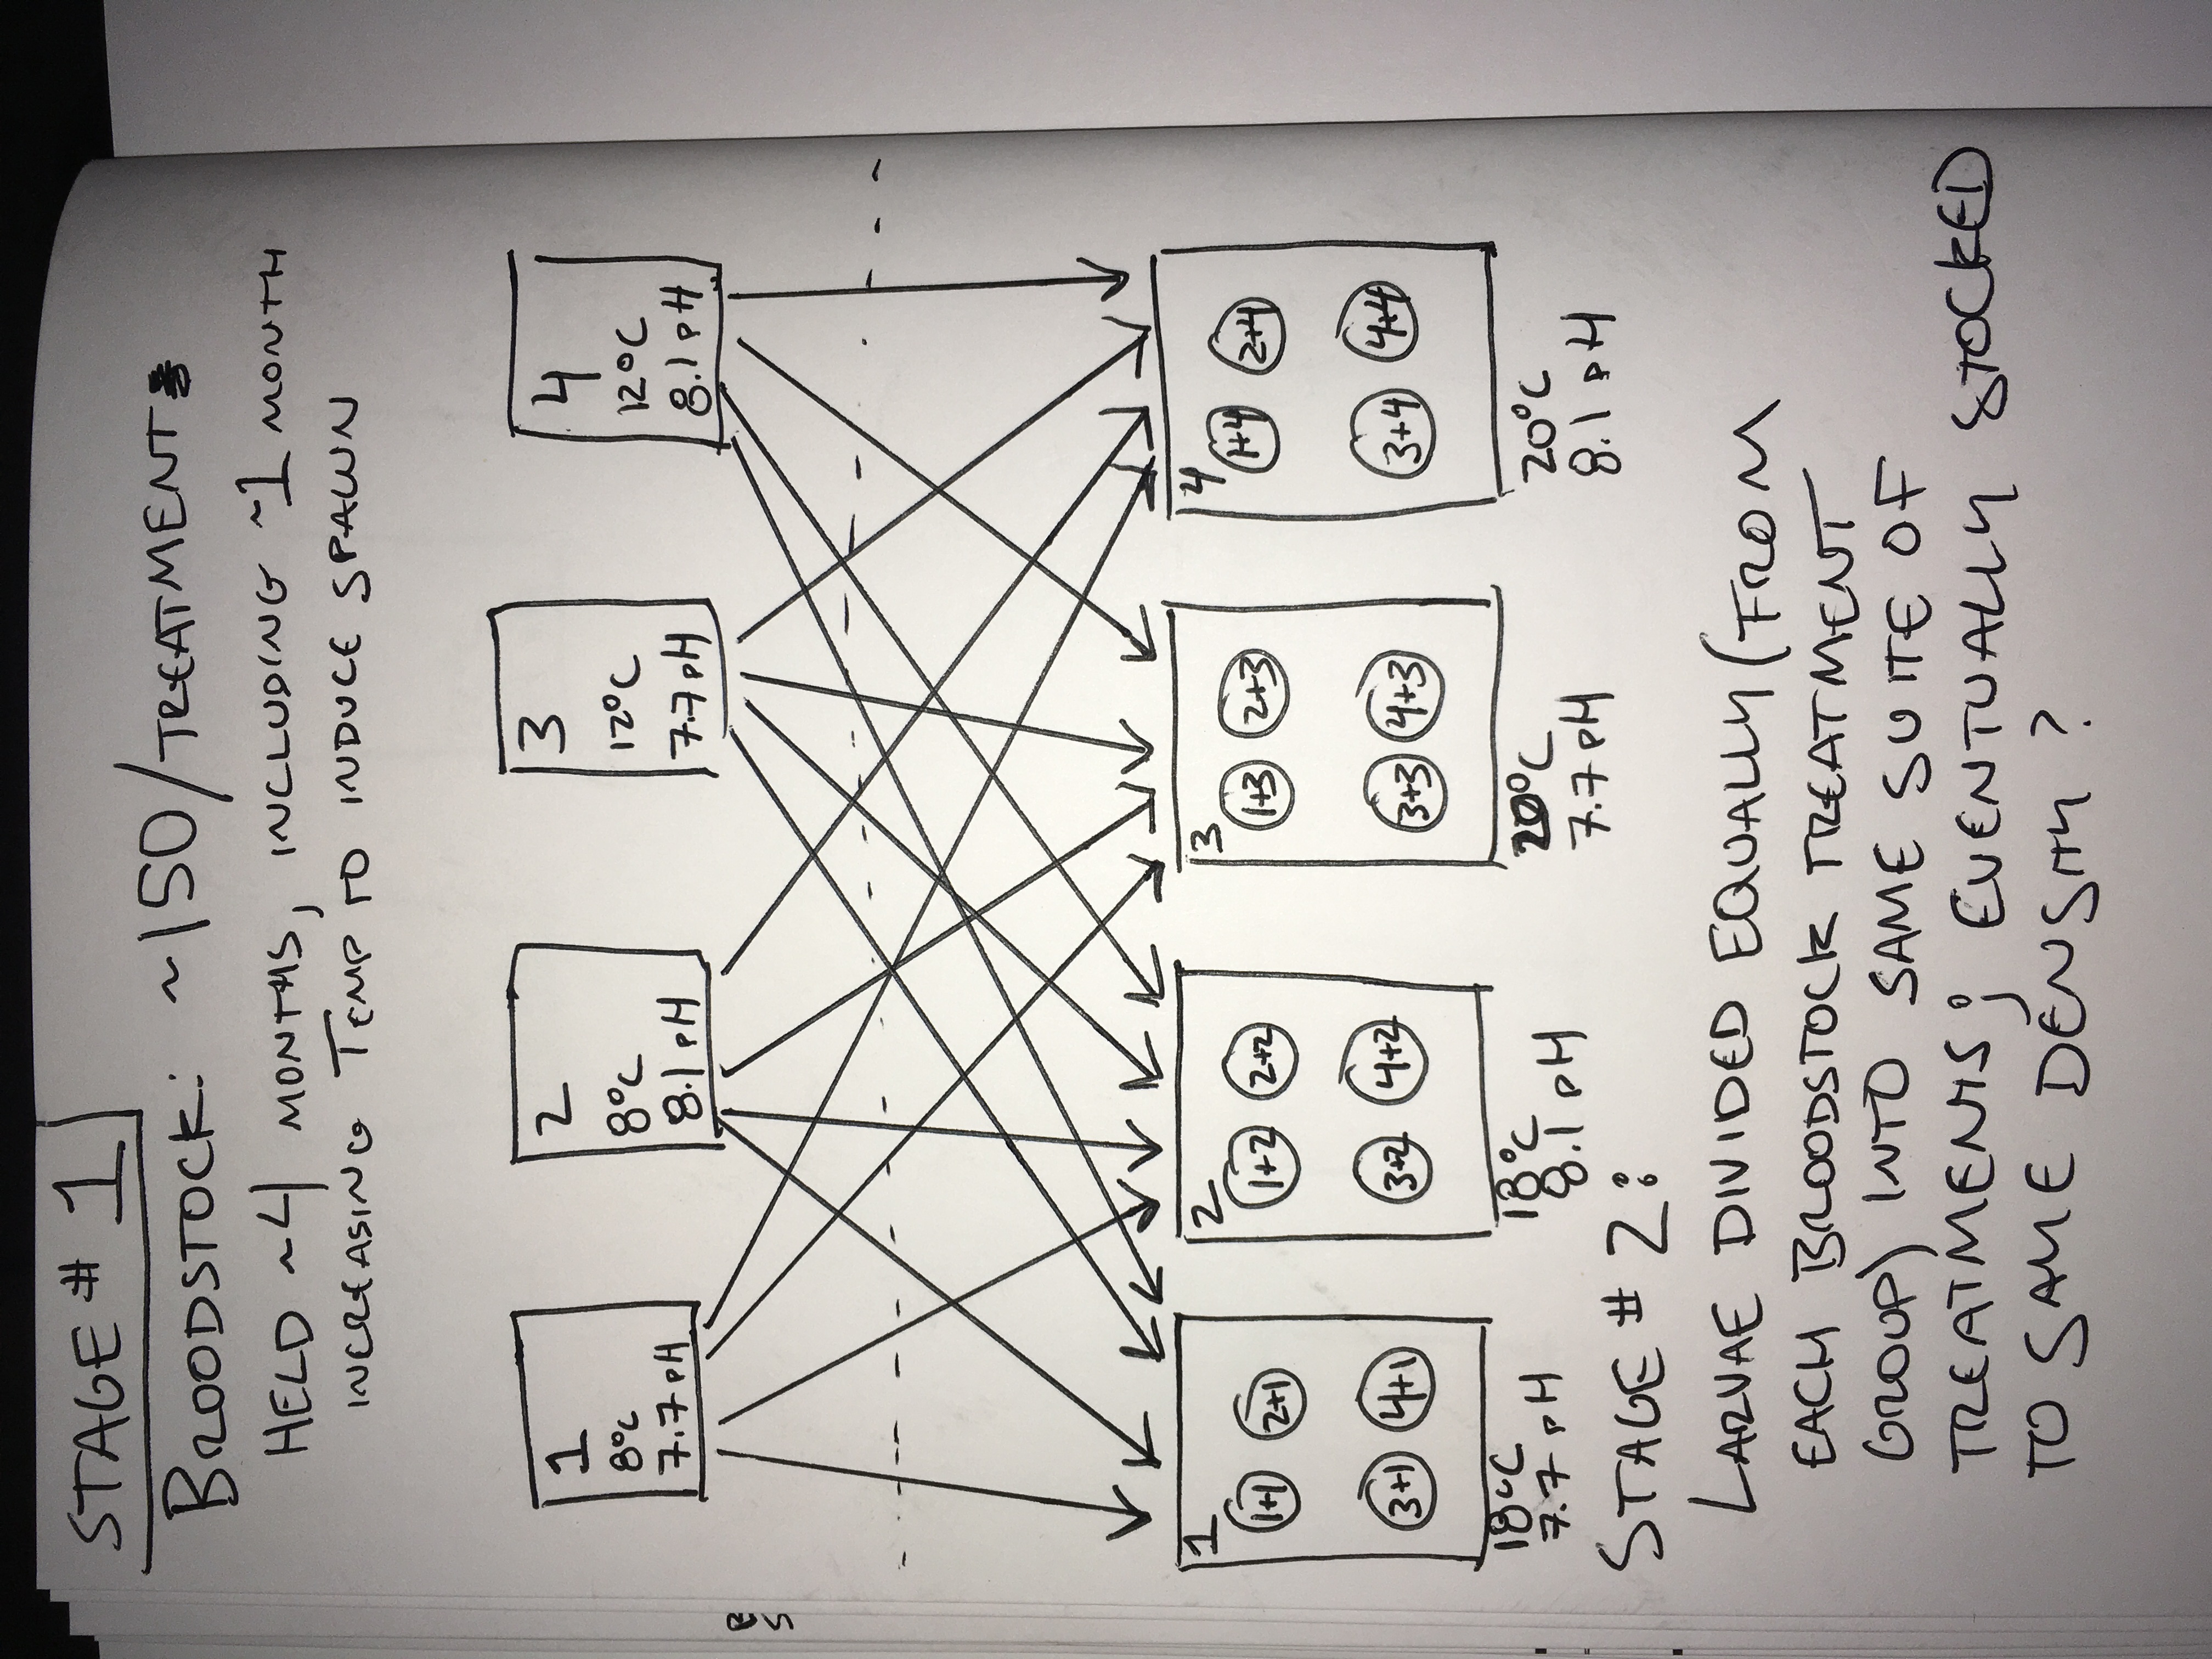 STAGE # 1
BROODSTOCK: ~150/TREATMENT
HELD ~4 MONTHS, INCLUDING ~1 MONTH
INCREASING TEMP TO INDUCE SPAWN
1
8°C
7.7 pH
2
8°C
8.1 pH
3
12°C
7.7 pH
4
12°C
8.1 pH
1
1+1 2+1
3+1 4+1
18°C
7.7 pH
2
1+2 2+2
3+2 4+2
18°C
8.1 pH
3
1+3 2+3
3+3 4+3
20°C
7.7 pH
4
1+4 2+4
3+4 4+4
20°C
8.1 pH
STAGE # 2:
LARVAE DIVIDED EQUALLY (FROM
EACH BROODSTOCK TREATMENT
GROUP) INTO SAME SUITE OF
TREATMENTS; EVENTUALLY STOCKED
TO SAME DENSITY ?